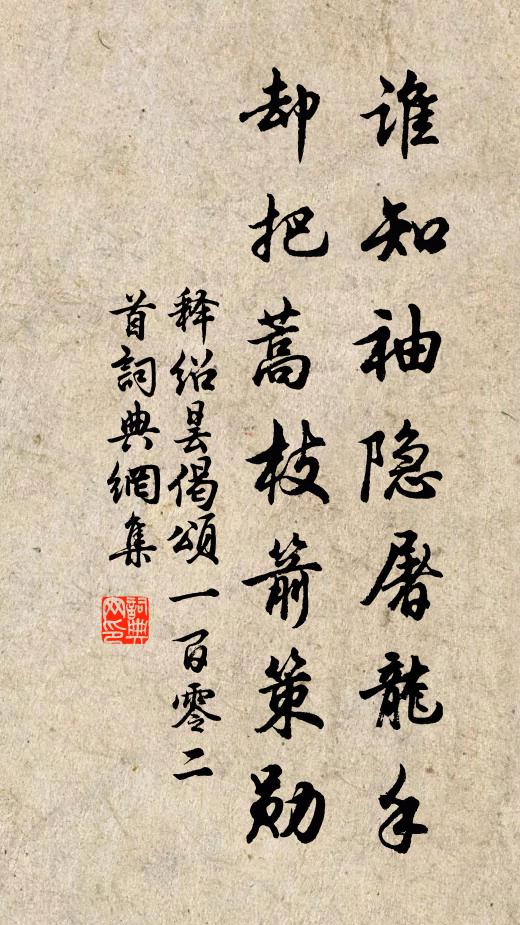 谁知袖隐屠龍手
却把蒿枝箭策勋
释绍昙偈頌一百零二
首詞典網集
詞典网印